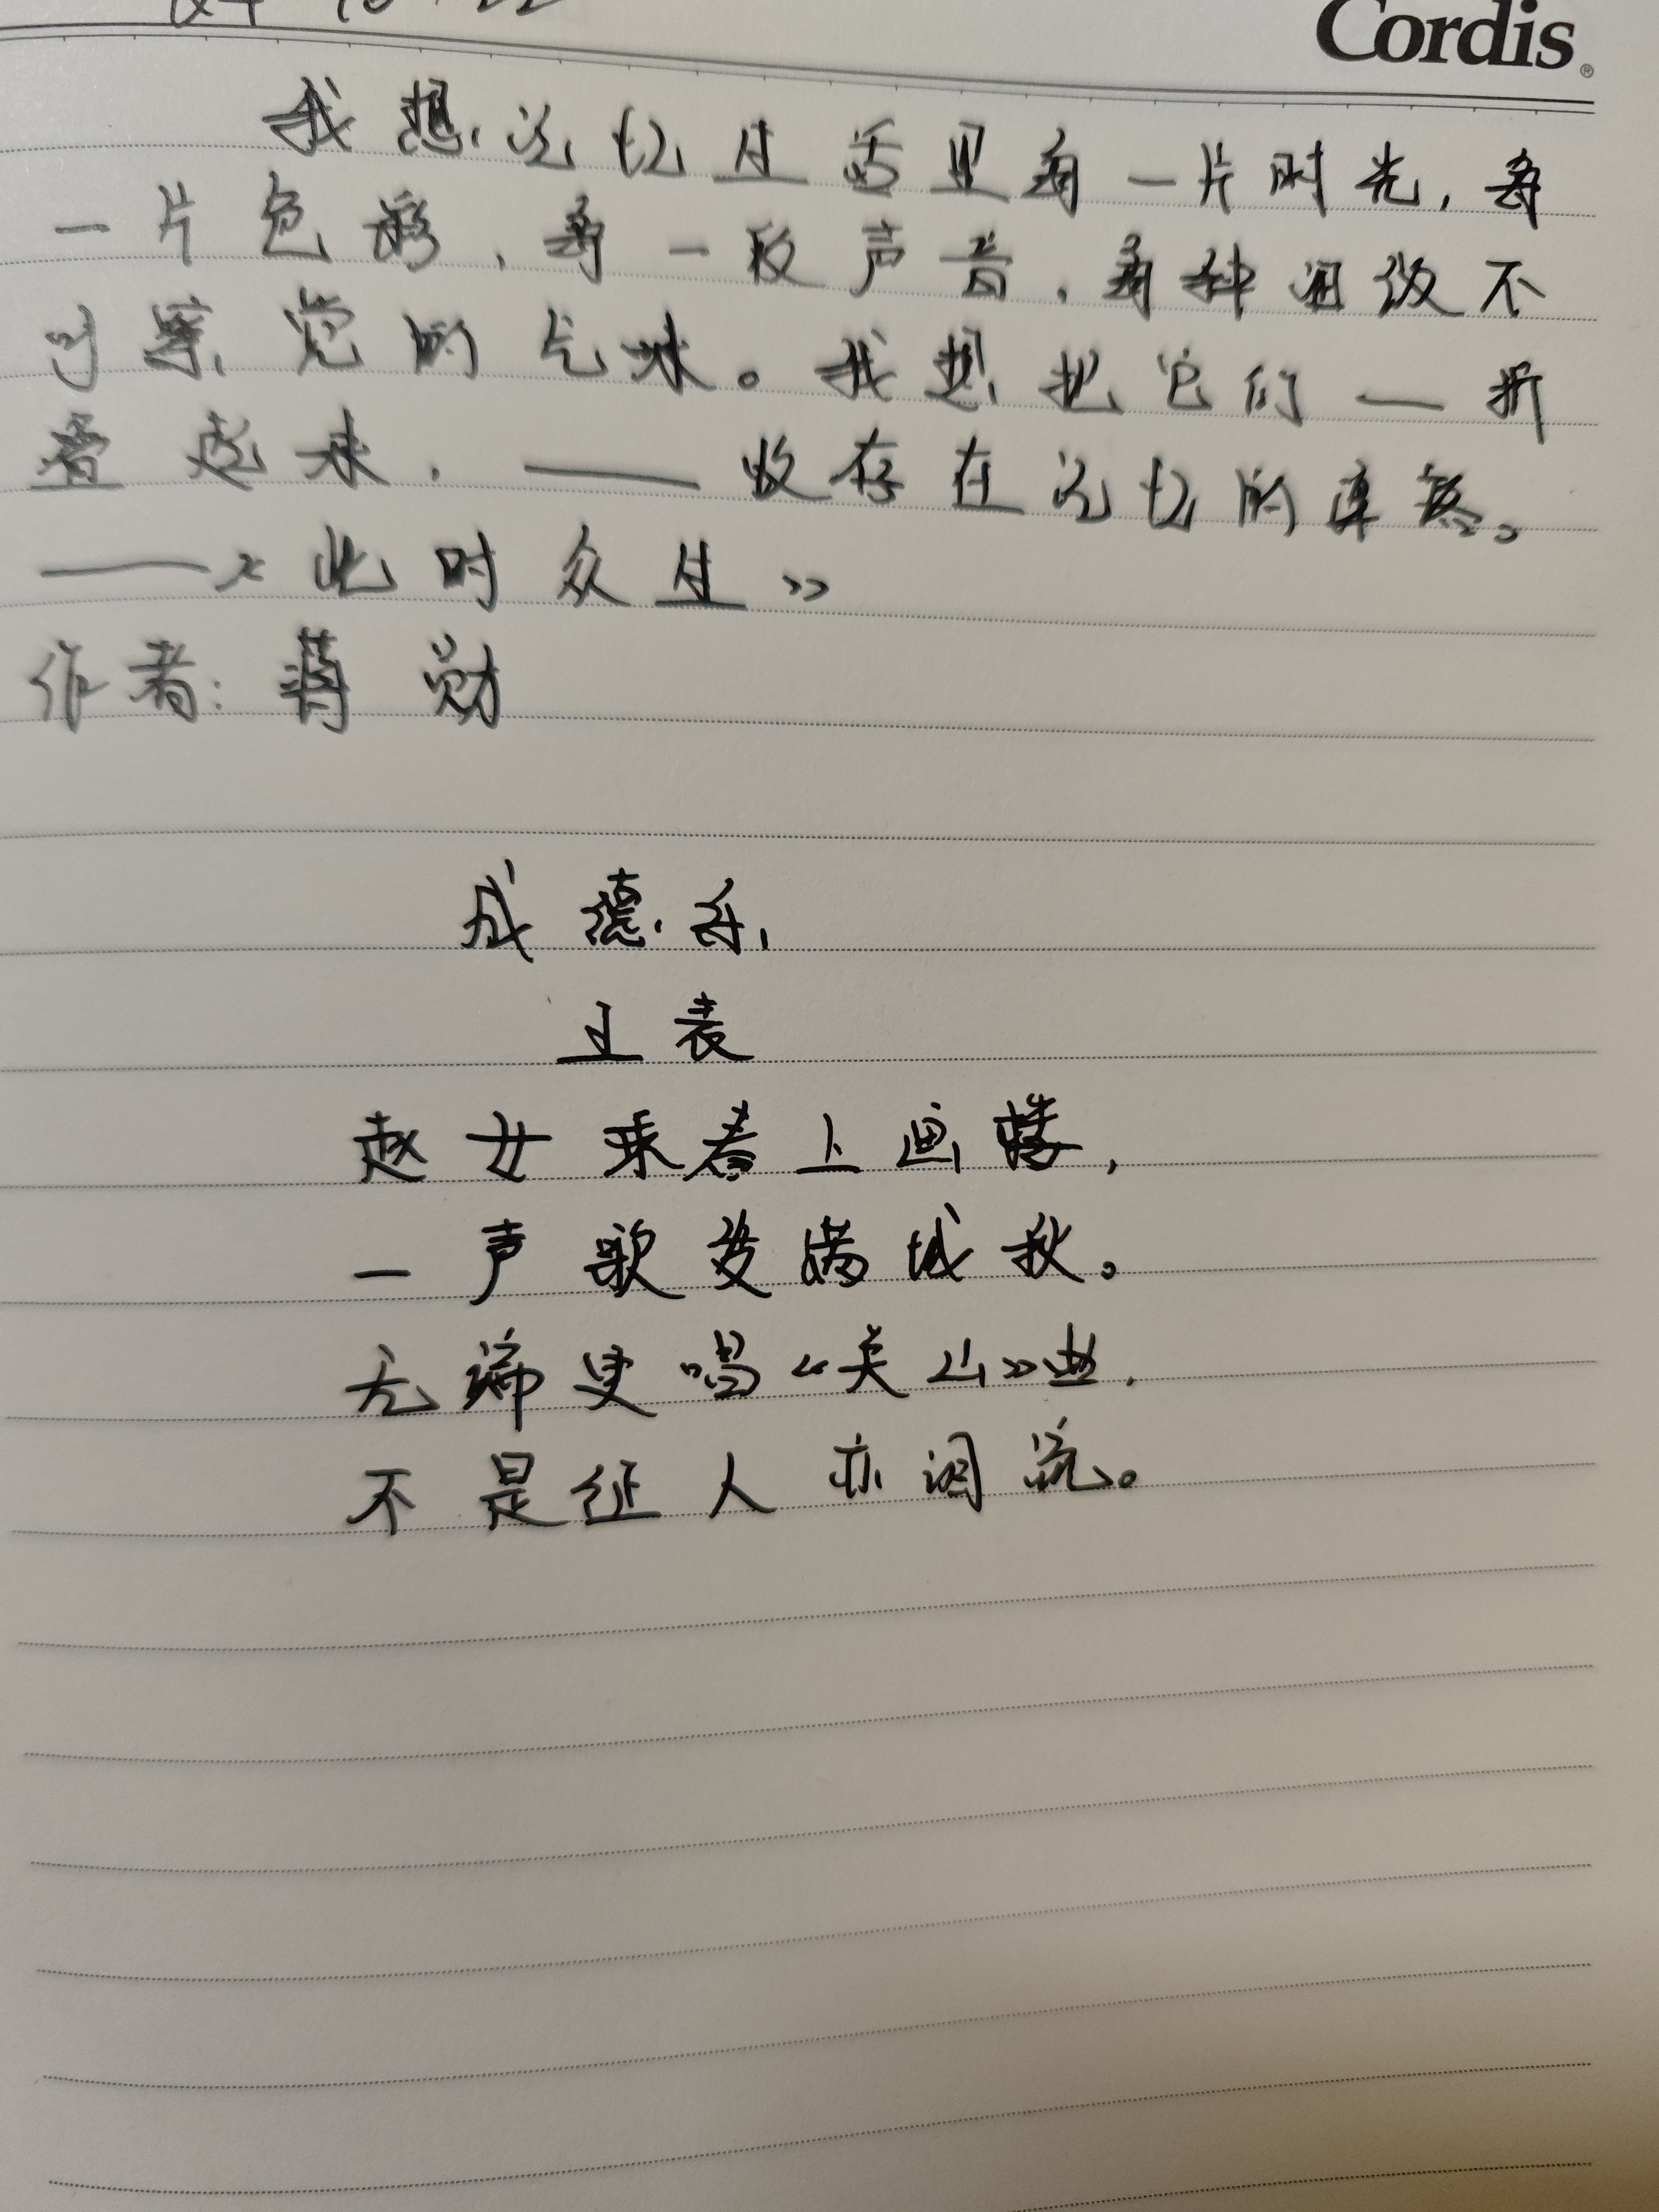 Cordis
我想记忆生活里每一片时光,每
一片色彩,每一段声音,每种细微不
可察觉的气味。我想把它们一一折
叠起来,一一收存在记忆的角落。
——《此时众生》
作者:蒋勋
成德乐
王表
赵女乘春上画楼,
一声歌发满城秋。
无端更唱《关山》曲,
不是征人亦泪流。